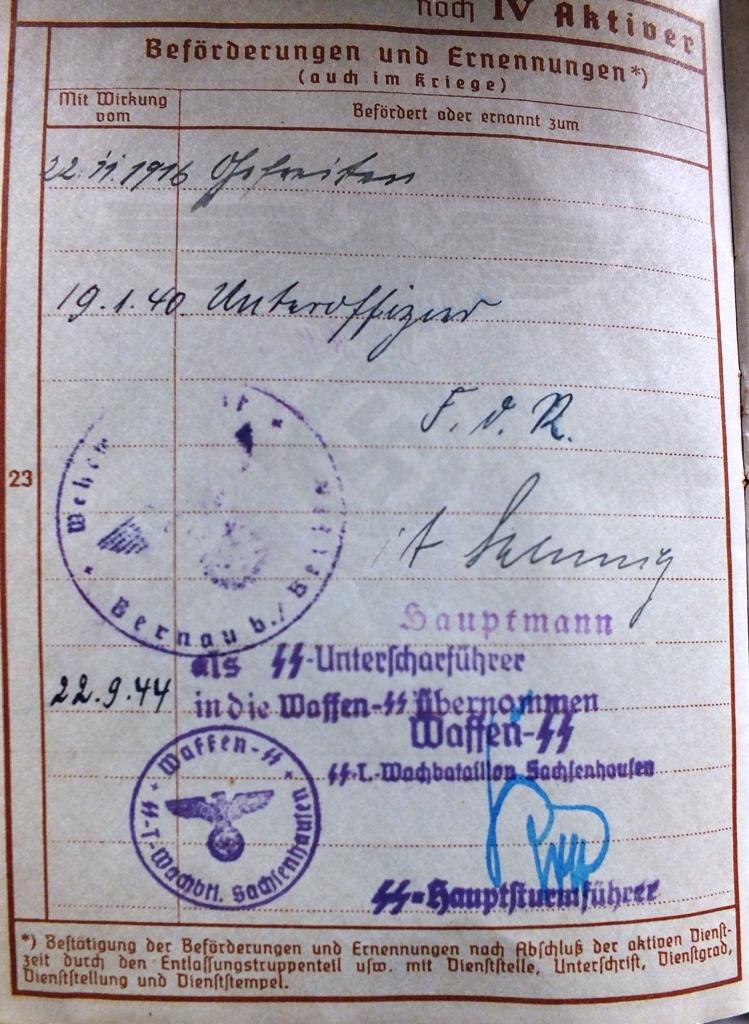 noch IV Aktiver
Beförderungen und Ernennungen*)
(auch im Kriege)
Mit Wirkung vom
Befördert oder ernannt zum
22.11.1916 Gefreiten
19.1.40. Unteroffizier
F. d. R.
23
Wehrm
Bernau b./Berlin
Hauptmann
als SS-Unterscharführer
22.9.44 in die Waffen-SS übernommen
Waffen-SS
SS-T.-Wachbataillon Sachsenhausen
Waffen-SS
SS-T-Wachbtl. Sachsenhausen
SS-Hauptsturmführer
*) Bestätigung der Beförderungen und Ernennungen nach Abschluß der aktiven Dienst-
zeit durch den Entlassungstruppenteil usw. mit Dienststelle, Unterschrift, Dienstgrad,
Dienststellung und Dienststempel.